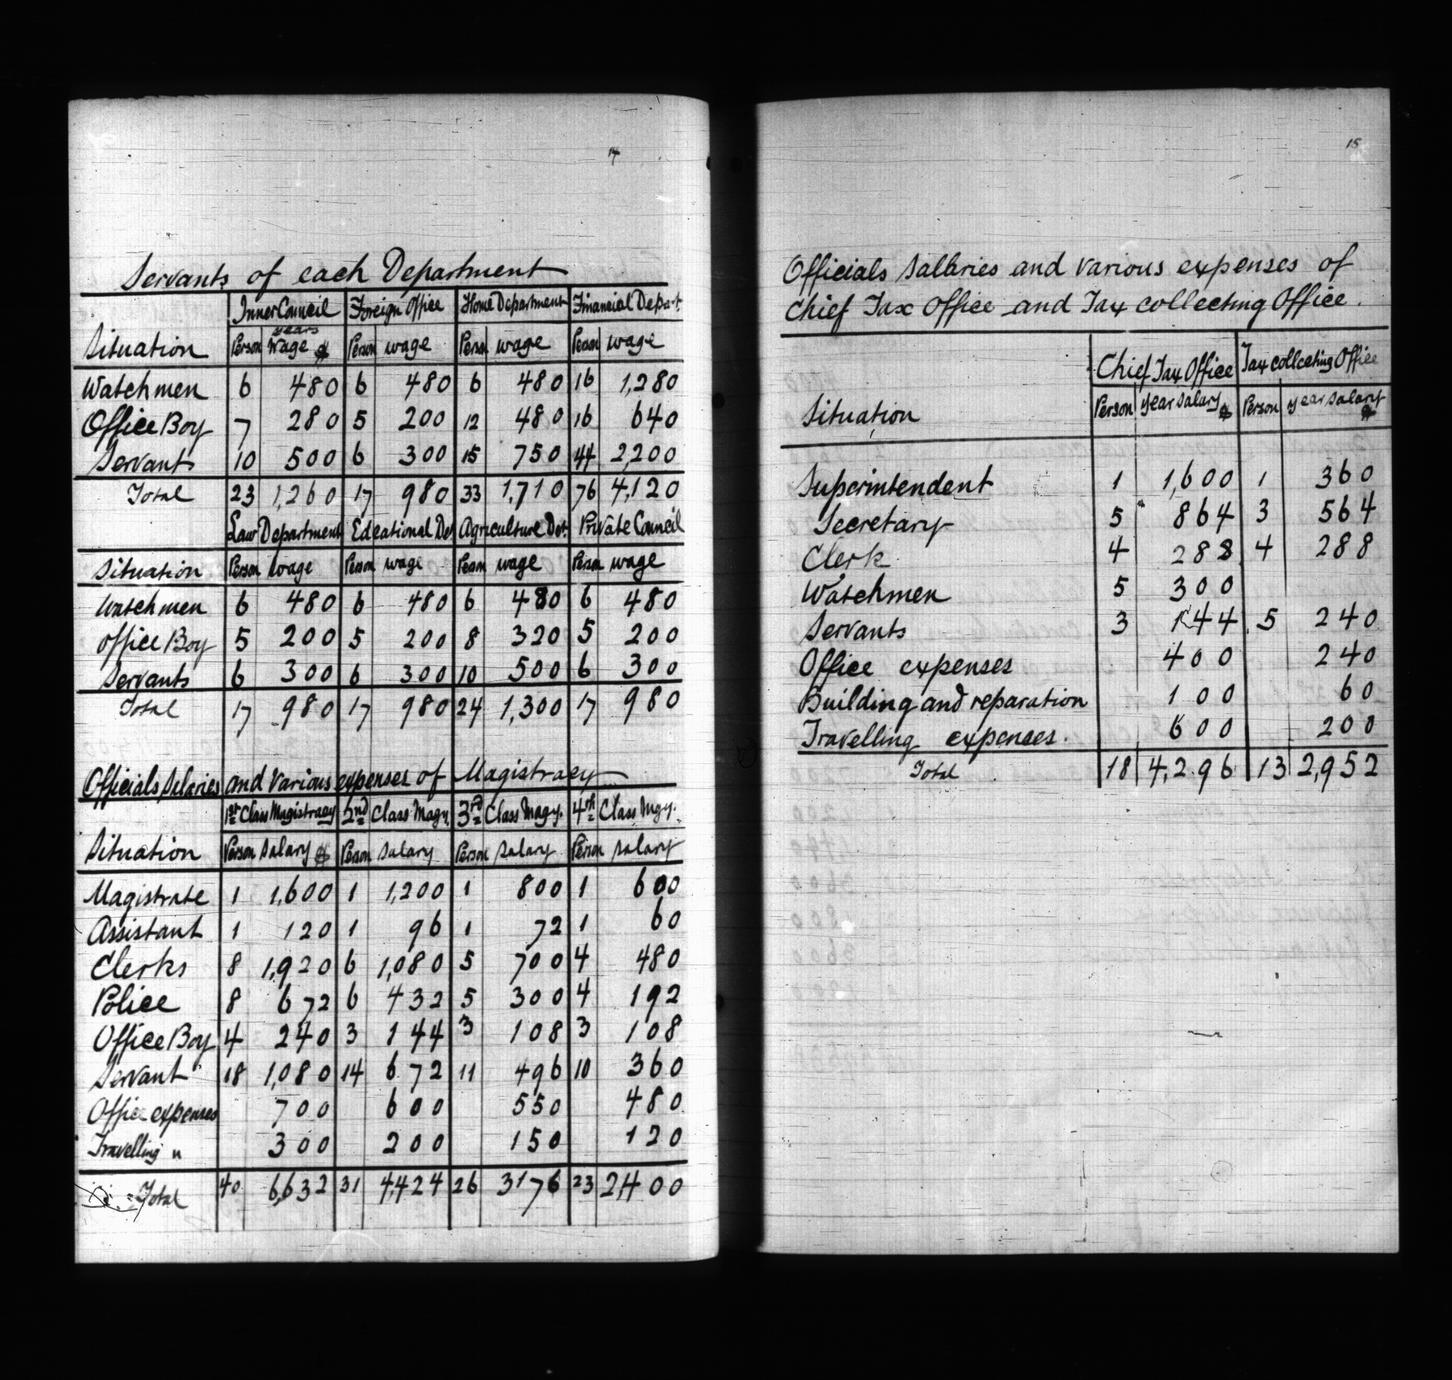 14
Servants of each Department
Inner Council Foreign Office Home Department Financial Depart.
Situation Person years Wage $ Person wage Person wage Person wage
Watchmen 6 480 6 480 6 480 16 1,280
Office Boy 7 280 5 200 12 480 16 640
Servant 10 500 6 300 15 750 44 2,200
Total 23 1,260 17 980 33 1,710 76 4,120
Law Department Edcational Det Agriculture Det. Private Council
Situation Person wage Person wage Person wage Person wage
Watchmen 6 480 6 480 6 480 6 480
Office Boy 5 200 5 200 8 320 5 200
Servants 6 300 6 300 10 500 6 300
Total 17 980 17 980 24 1,300 17 980
Officials Salaries and various expenses of Magistracy
1st Class Magistracy 2nd Class Magy. 3rd Class Magy. 4th Class Mgy.
Situation Person Salary $ Person Salary Person Salary Person Salary
Magistrate 1 1,600 1 1,200 1 800 1 600
Assistant 1 120 1 96 1 72 1 60
Clerks 8 1,920 6 1,080 5 700 4 480
Police 8 672 6 432 5 300 4 192
Office Boy 4 240 3 144 3 108 3 108
Servant 18 1,080 14 672 11 496 10 360
Office expenses 700 600 550 480
Travelling " 300 200 150 120
Total 40 6,632 31 4,424 26 3176 23 2,400
15
Officials Salaries and various expenses of
Chief Tax Office and Tax collecting Office.
Chief Tax Office Tax collecting Office
Situation Person year salary $ Person year salary $
Superintendent 1 1,600 1 360
Secretary 5 864 3 564
Clerk 4 288 4 288
Watchmen 5 300
Servants 3 144 5 240
Office expenses 400 240
Building and reparation 100 60
Travelling expenses. 600 200
Total 18 4,296 13 2,952